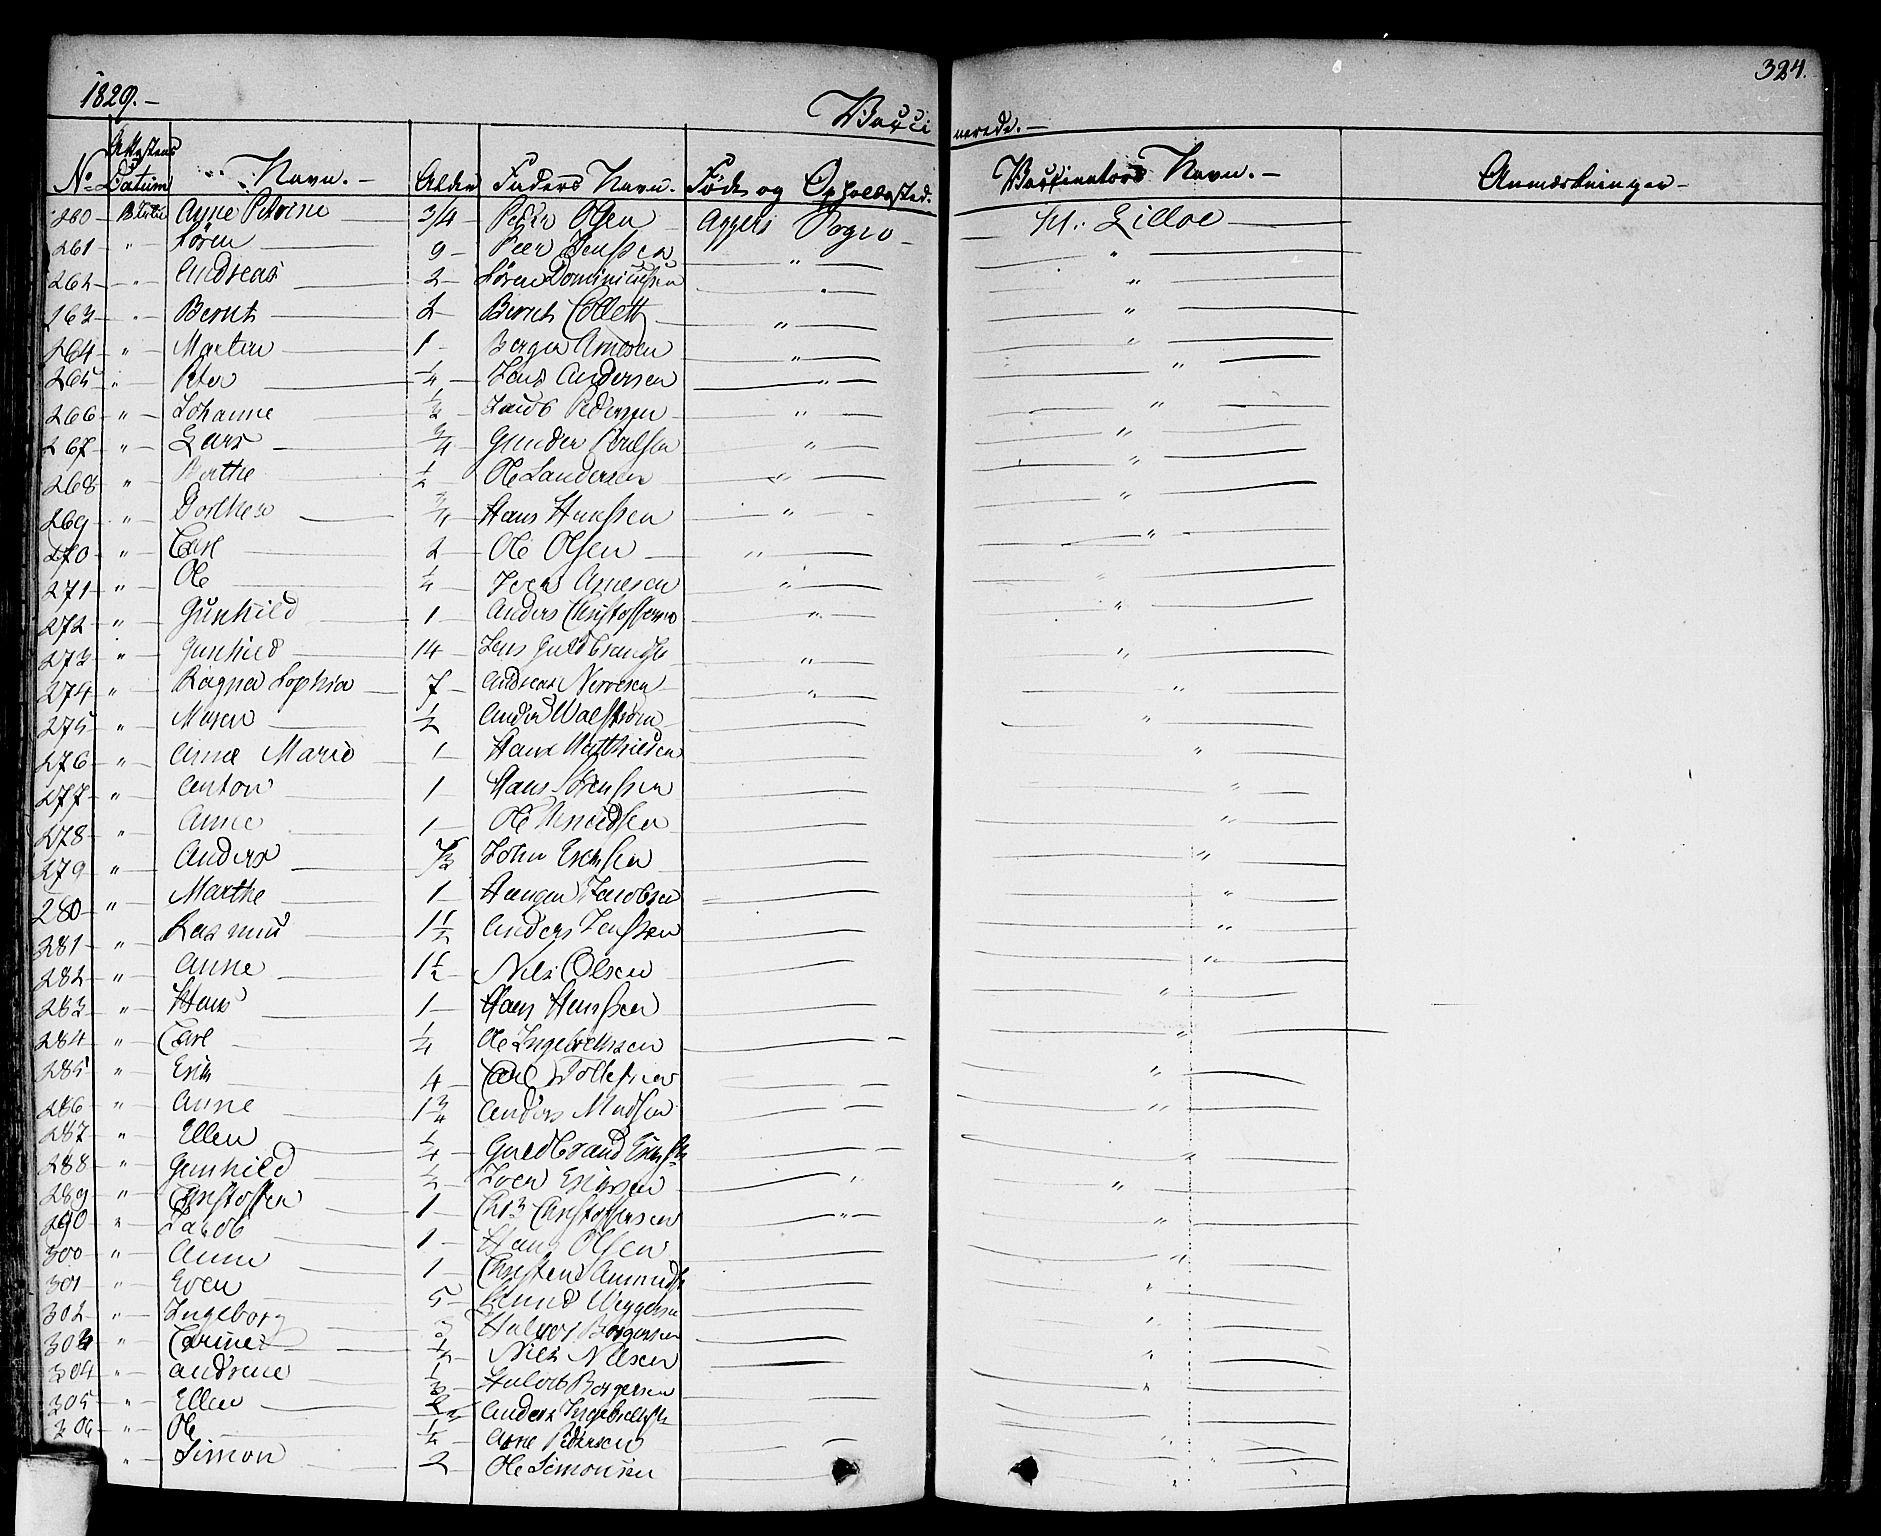 1829.- Vacci nerede.- 324.
No Attestens Datum Navn.- Alder Faders Navn. Føde og Opholdssted. Vaccinateurs Navn.- Anmærkninger-
260 Anne Petrine 3/4 Peder Olsen Aggers Sogn Lilloe
261 " Søren 9 Peer Jenssen " "
262 " Andreas 2 Søren Dominicussen " "
263 " Bernt 2 Bernt Collett " "
264 " Martin 1 Børger Arnesen " "
265 " Peter 1/4 Jens Andersen " "
266 " Johanne 1/2 Jacob Pedersen " "
267 " Lars 3/4 Gunder Poulsen " "
268 " Berthe 1/2 Ole Sandersen " "
269 " Dorthea 3/4 Hans Hanssen " "
270 " Carl 2 Ole Olsen " "
271 " Ole 1/4 Iver Arnesen " "
272 " Gunhild 1 Anders Christoffersen " "
273 " Gunhild 14 Jens Guldbrands " "
274 " Ragna Sophia 7 Andreas " "
275 " Maren 1/2 Anders Walstrøm "
276 " Anne Marie 1 Hans Matthiesen "
277 " Anton 1 Hans Sørenssen "
278 " Anne 1 Ole Knudsen "
279 " Anders John Erichsen "
280 " Marthe 1 Haagen Jacobsen "
281 " Rasmus 1 1/2 Anders Jenssen "
282 " Anne 1 1/2 Nils Olsen "
283 " Hans 1 Hans Hanssen "
284 " Carl 1/4 Ole Ingebrethsen "
285 " Erich 4 Carl Tollefsen "
286 " Anne 1 3/4 Anders Madsen "
287 " Ellen 1/4 Guldbrand Erichs "
288 " Gunhild 1/2 Iver Erichsen " "
289 " Christoffer 1 Chr. Christoffersen " "
290 " Jacob 1 Hans Olsen "
300 " Anne 1 Christen Aamunds "
301 " Even 5 Knud "
302 " Ingeborg Halvor Borgersen "
303 " Carine Nils Nilsen "
304 " Andrine Halvor Borgersen "
305 " Ellen Anders Ingebrethsen "
306 " Ole 1/2 Arne Pedersen "
" Simon 2 Ole Simonsen "